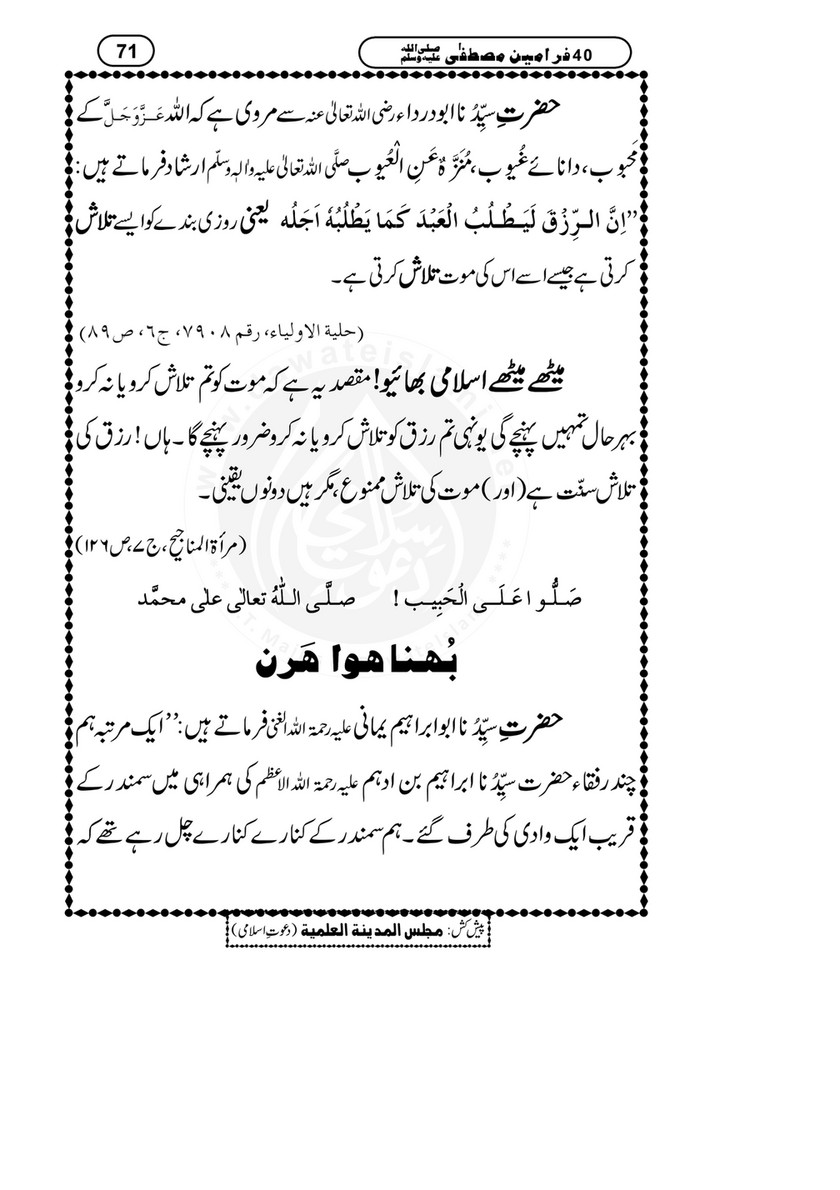 40 فرامین مصطفٰی صلی اللہ علیہ وسلم
71
حضرتِ سیِّدُنا ابودرداء رضی اللہ تعالیٰ عنہ سے مروی ہے کہ اللہ عَزَّوَجَلَّ کے
مَحبوب، دانائے غُیوب، مُنَزَّہٌ عَنِ الْعُیوب صلَّی اللہ تعالیٰ علیہ واٰلہٖ وسلّم ارشاد فرماتے ہیں:
”اِنَّ الرِّزْقَ لَیَطْلُبُ الْعَبْدَ کَمَا یَطْلُبُہٗ اَجَلُہ یعنی روزی بندے کو ایسے تلاش
کرتی ہے جیسے اسے اس کی موت تلاش کرتی ہے۔
(حلیۃ الاولیاء، رقم ۷۹۰۸، ج۶، ص۸۹)
میٹھے میٹھے اسلامی بھائیو! مقصد یہ ہے کہ موت کو تم تلاش کرو یا نہ کرو
بہرحال تمہیں پہنچے گی یونہی تم رزق کو تلاش کرو یا نہ کرو ضرور پہنچے گا۔ ہاں! رزق کی
تلاش سنّت ہے (اور) موت کی تلاش ممنوع، مگر ہیں دونوں یقینی۔
(مرأۃ المناجیح، ج۷، ص۱۲۶)
صَلُّوا عَلَی الْحَبِیب ! صلَّی اللہُ تعالٰی علٰی محمَّد
بُھنا ھوا ھَرن
حضرتِ سیِّدُنا ابو ابراہیم یمانی علیہ رحمۃ اللہ الغنی فرماتے ہیں: ”ایک مرتبہ ہم
چند رفقاء حضرت سیِّدُنا ابراہیم بن ادہم علیہ رحمۃ اللہ الاعظم کی ہمراہی میں سمندر کے
قریب ایک وادی کی طرف گئے۔ ہم سمندر کے کنارے کنارے چل رہے تھے کہ
پیش کش: مجلس المدینۃ العلمیۃ (دعوتِ اسلامی)